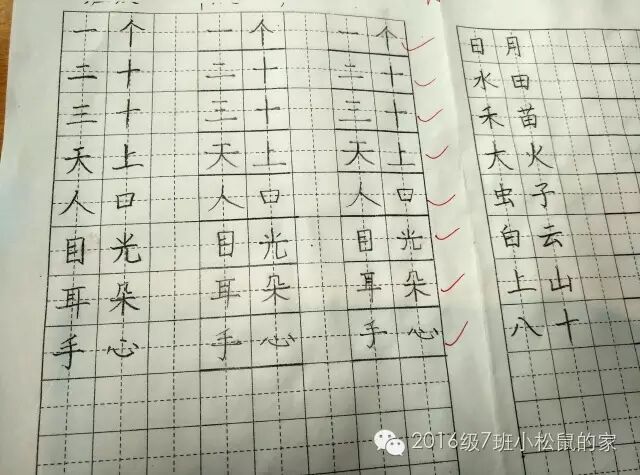 一个 一个 一个
二十 二十 二十
三十 三十 三十
天上 天上 天上
人口 人口 人口
目光 目光 目光
耳朵 耳朵 耳朵
手心 手心 手心
日月
水田
禾苗
大火
虫子
白云
上山
八十
2016级7班小松鼠的家